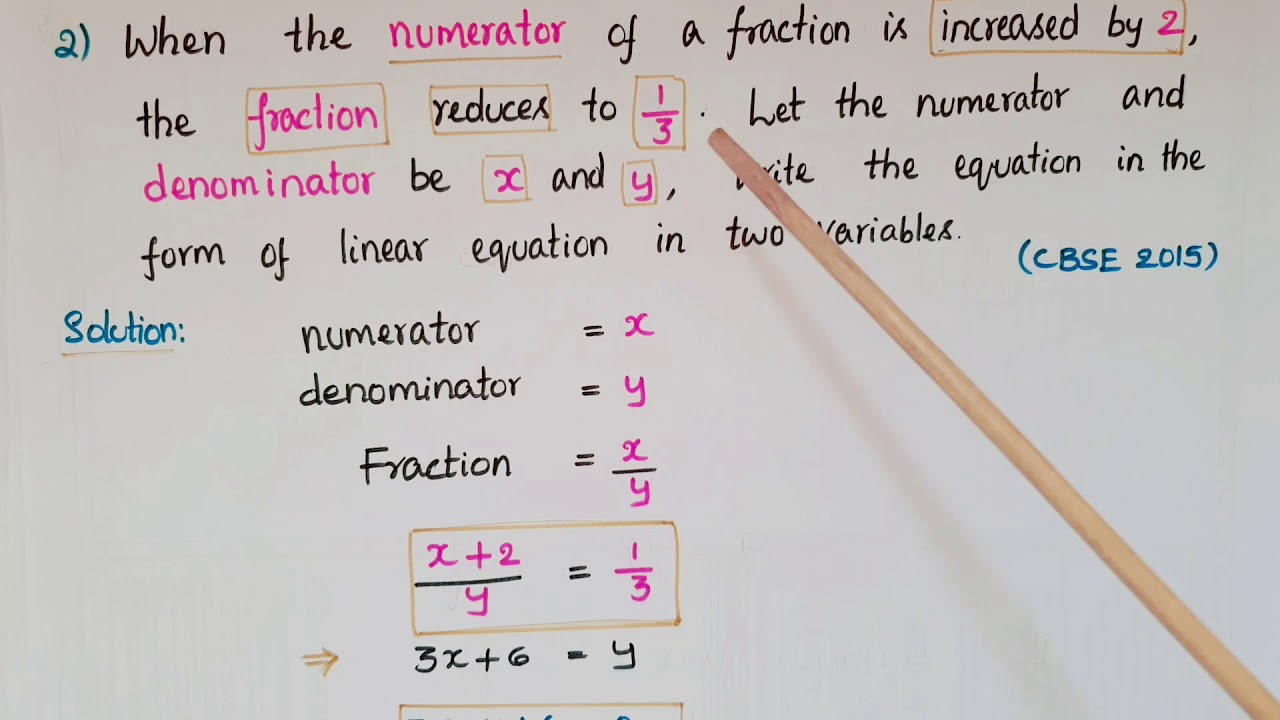 2) When the numerator of a fraction is increased by 2,
the fraction reduces to 1/3. Let the numerator and
denominator be x and y, the equation in the
form of linear equation in two variables.
(CBSE 2015)
Solution:
numerator = x
denominator = y
Fraction = x/y
(x+2)/y = 1/3
⇒ 3x+6 = y